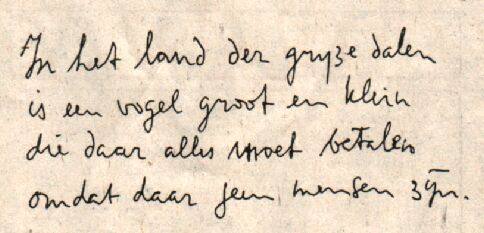 In het land der gryze dalen
is een vogel groot en klein
die daar alles moet betalen
omdat daar geen mensen zijn.